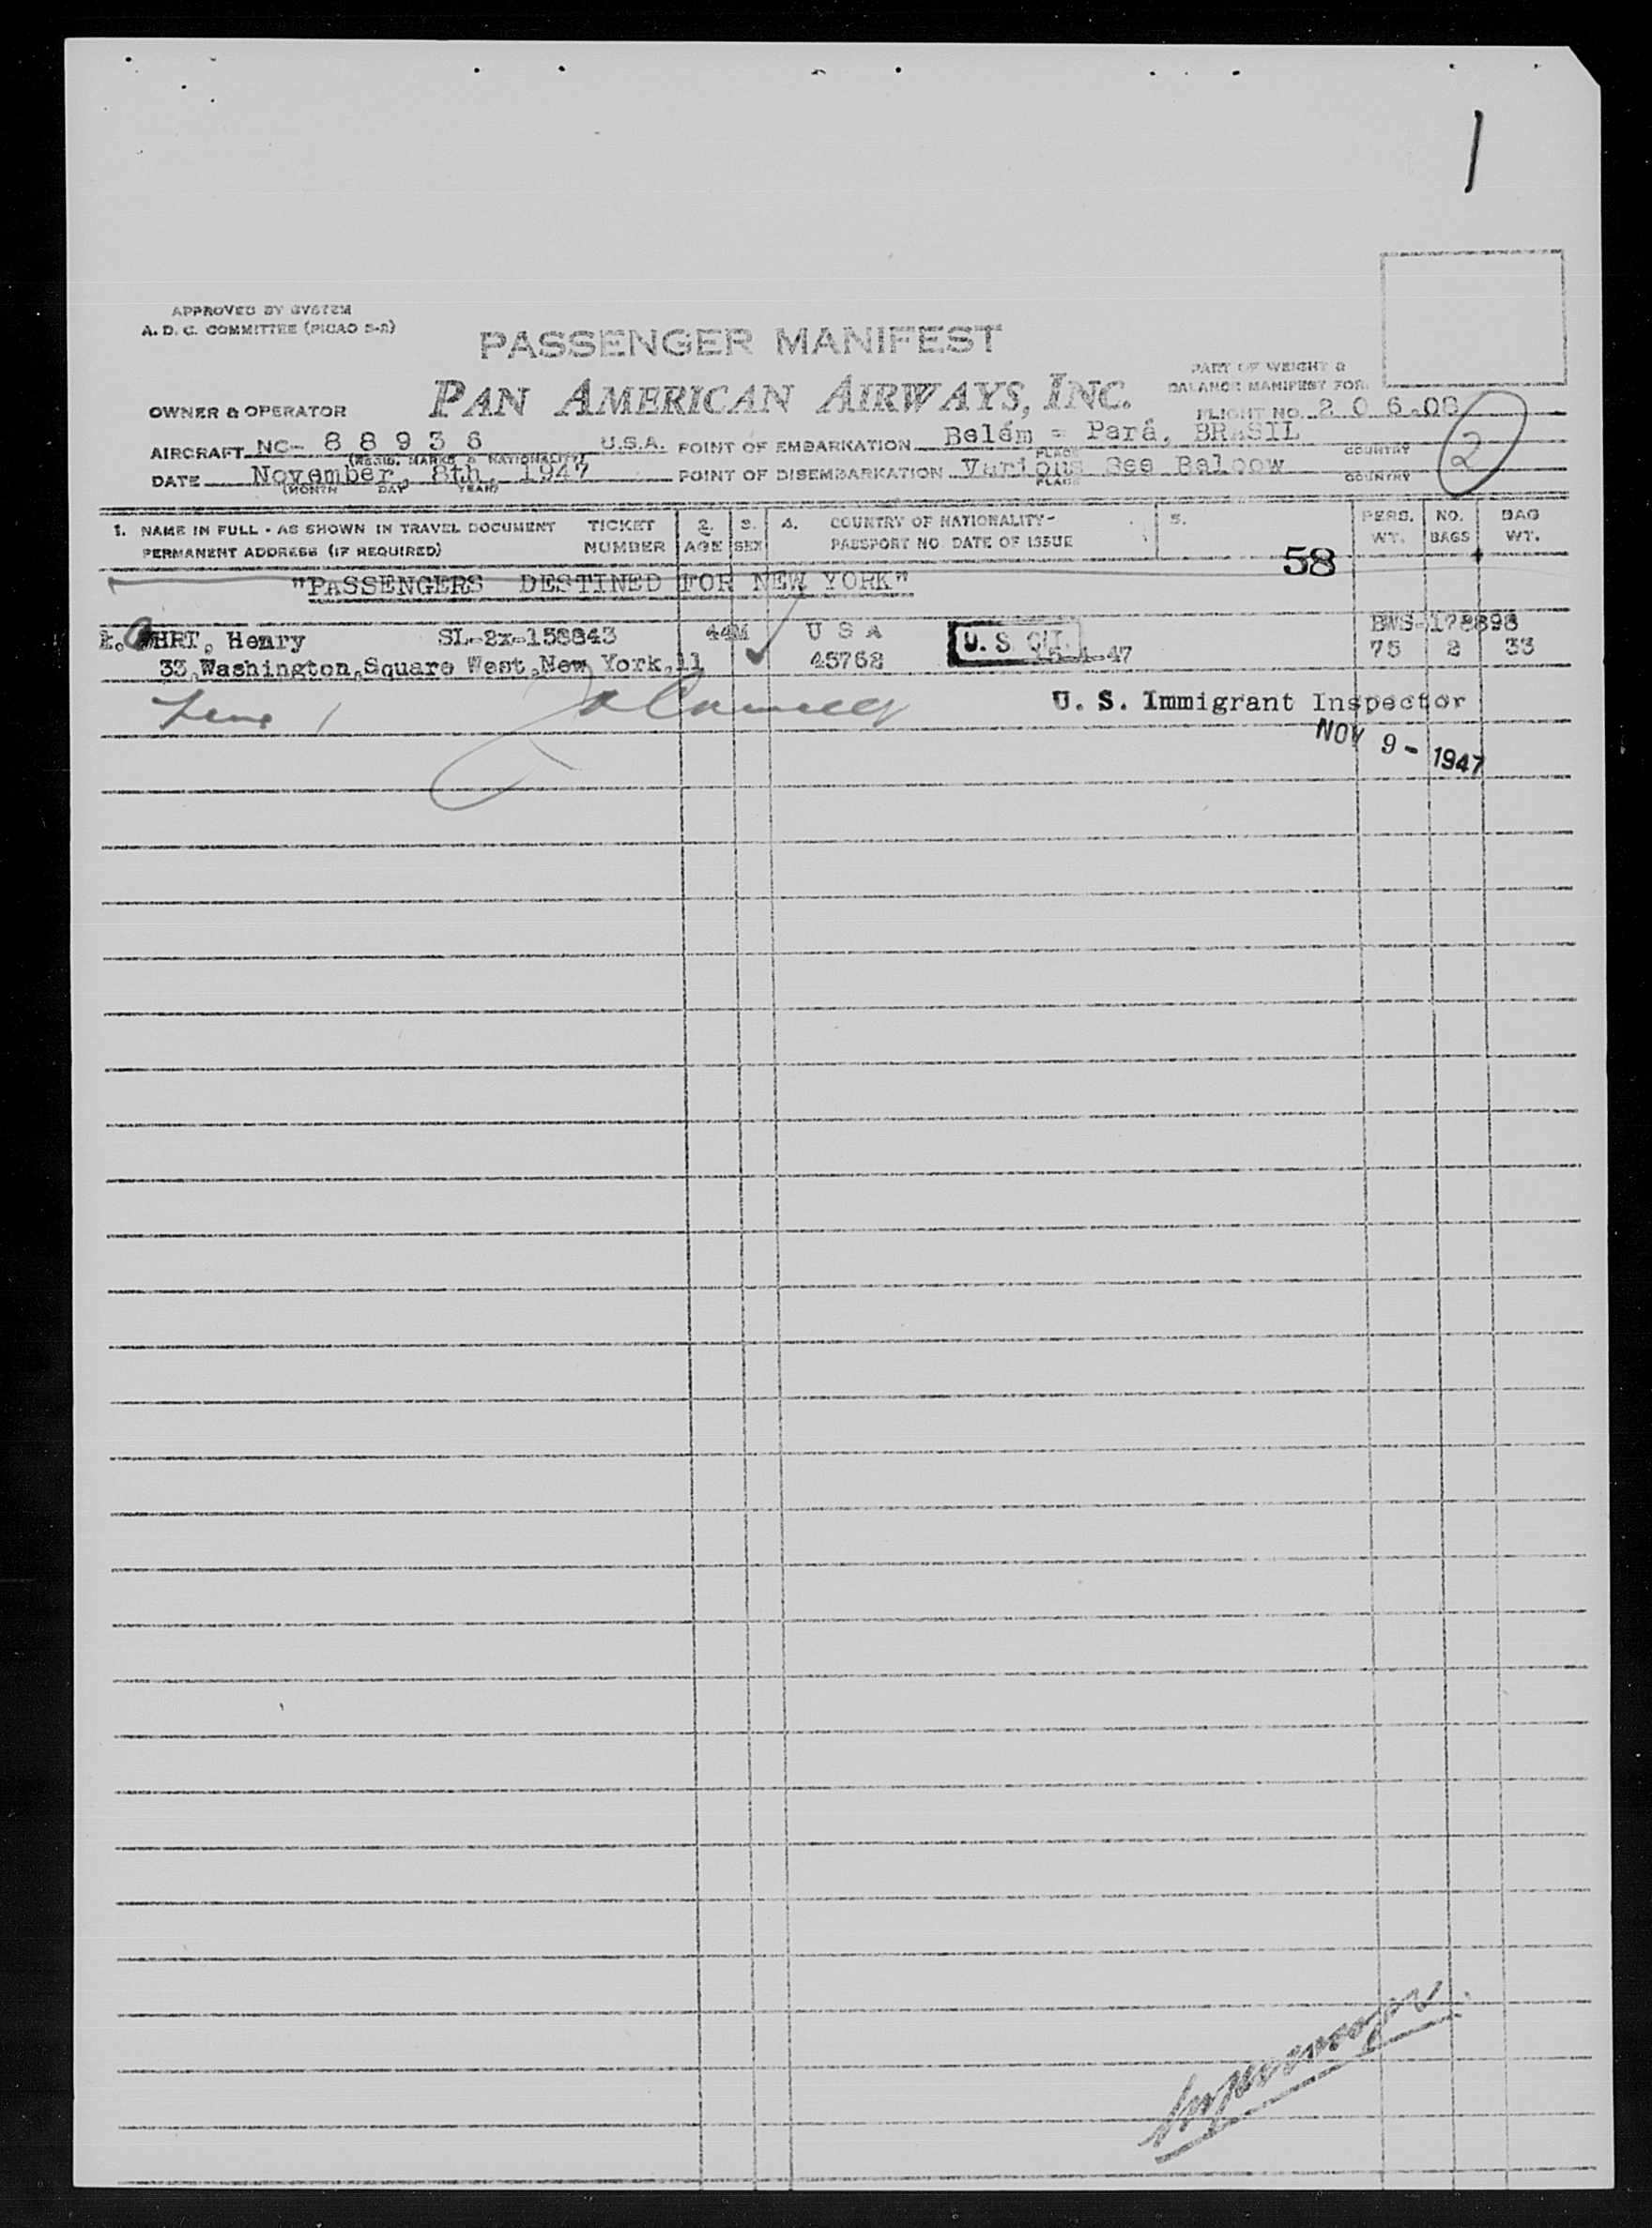 1
APPROVED BY SYSTEM
A. D. C. COMMITTEE (PICAO S-2)
PASSENGER MANIFEST
PART OF WEIGHT &
BALANCE MANIFEST FOR
OWNER & OPERATOR PAN AMERICAN AIRWAYS, INC. FLIGHT NO. 2 0 6.08
AIRCRAFT NC- 8 8 9 3 6 U.S.A. POINT OF EMBARKATION Belém - Pará, BRASIL
(REGIS. MARKS & NATIONALITY) PLACE COUNTRY
2
DATE November, 8th, 1947 POINT OF DISEMBARKATION Various See Beloow
(MONTH DAY YEAR) PLACE COUNTRY
1. NAME IN FULL - AS SHOWN IN TRAVEL DOCUMENT TICKET 2. 3. 4. COUNTRY OF NATIONALITY- 5. PERS. NO. BAG
PERMANENT ADDRESS (IF REQUIRED) NUMBER AGE SEX PASSPORT NO. DATE OF ISSUE WT. BAGS WT.
58
"PASSENGERS DESTINED FOR NEW YORK"
HRT, Henry SL-2x-158843 44M U S A U. S. CIT. BWS-178898
33,Washington,Square West,New York,11 45762 47 75 2 33
Line 1 U. S. Immigrant Inspector
NOV 9 - 1947